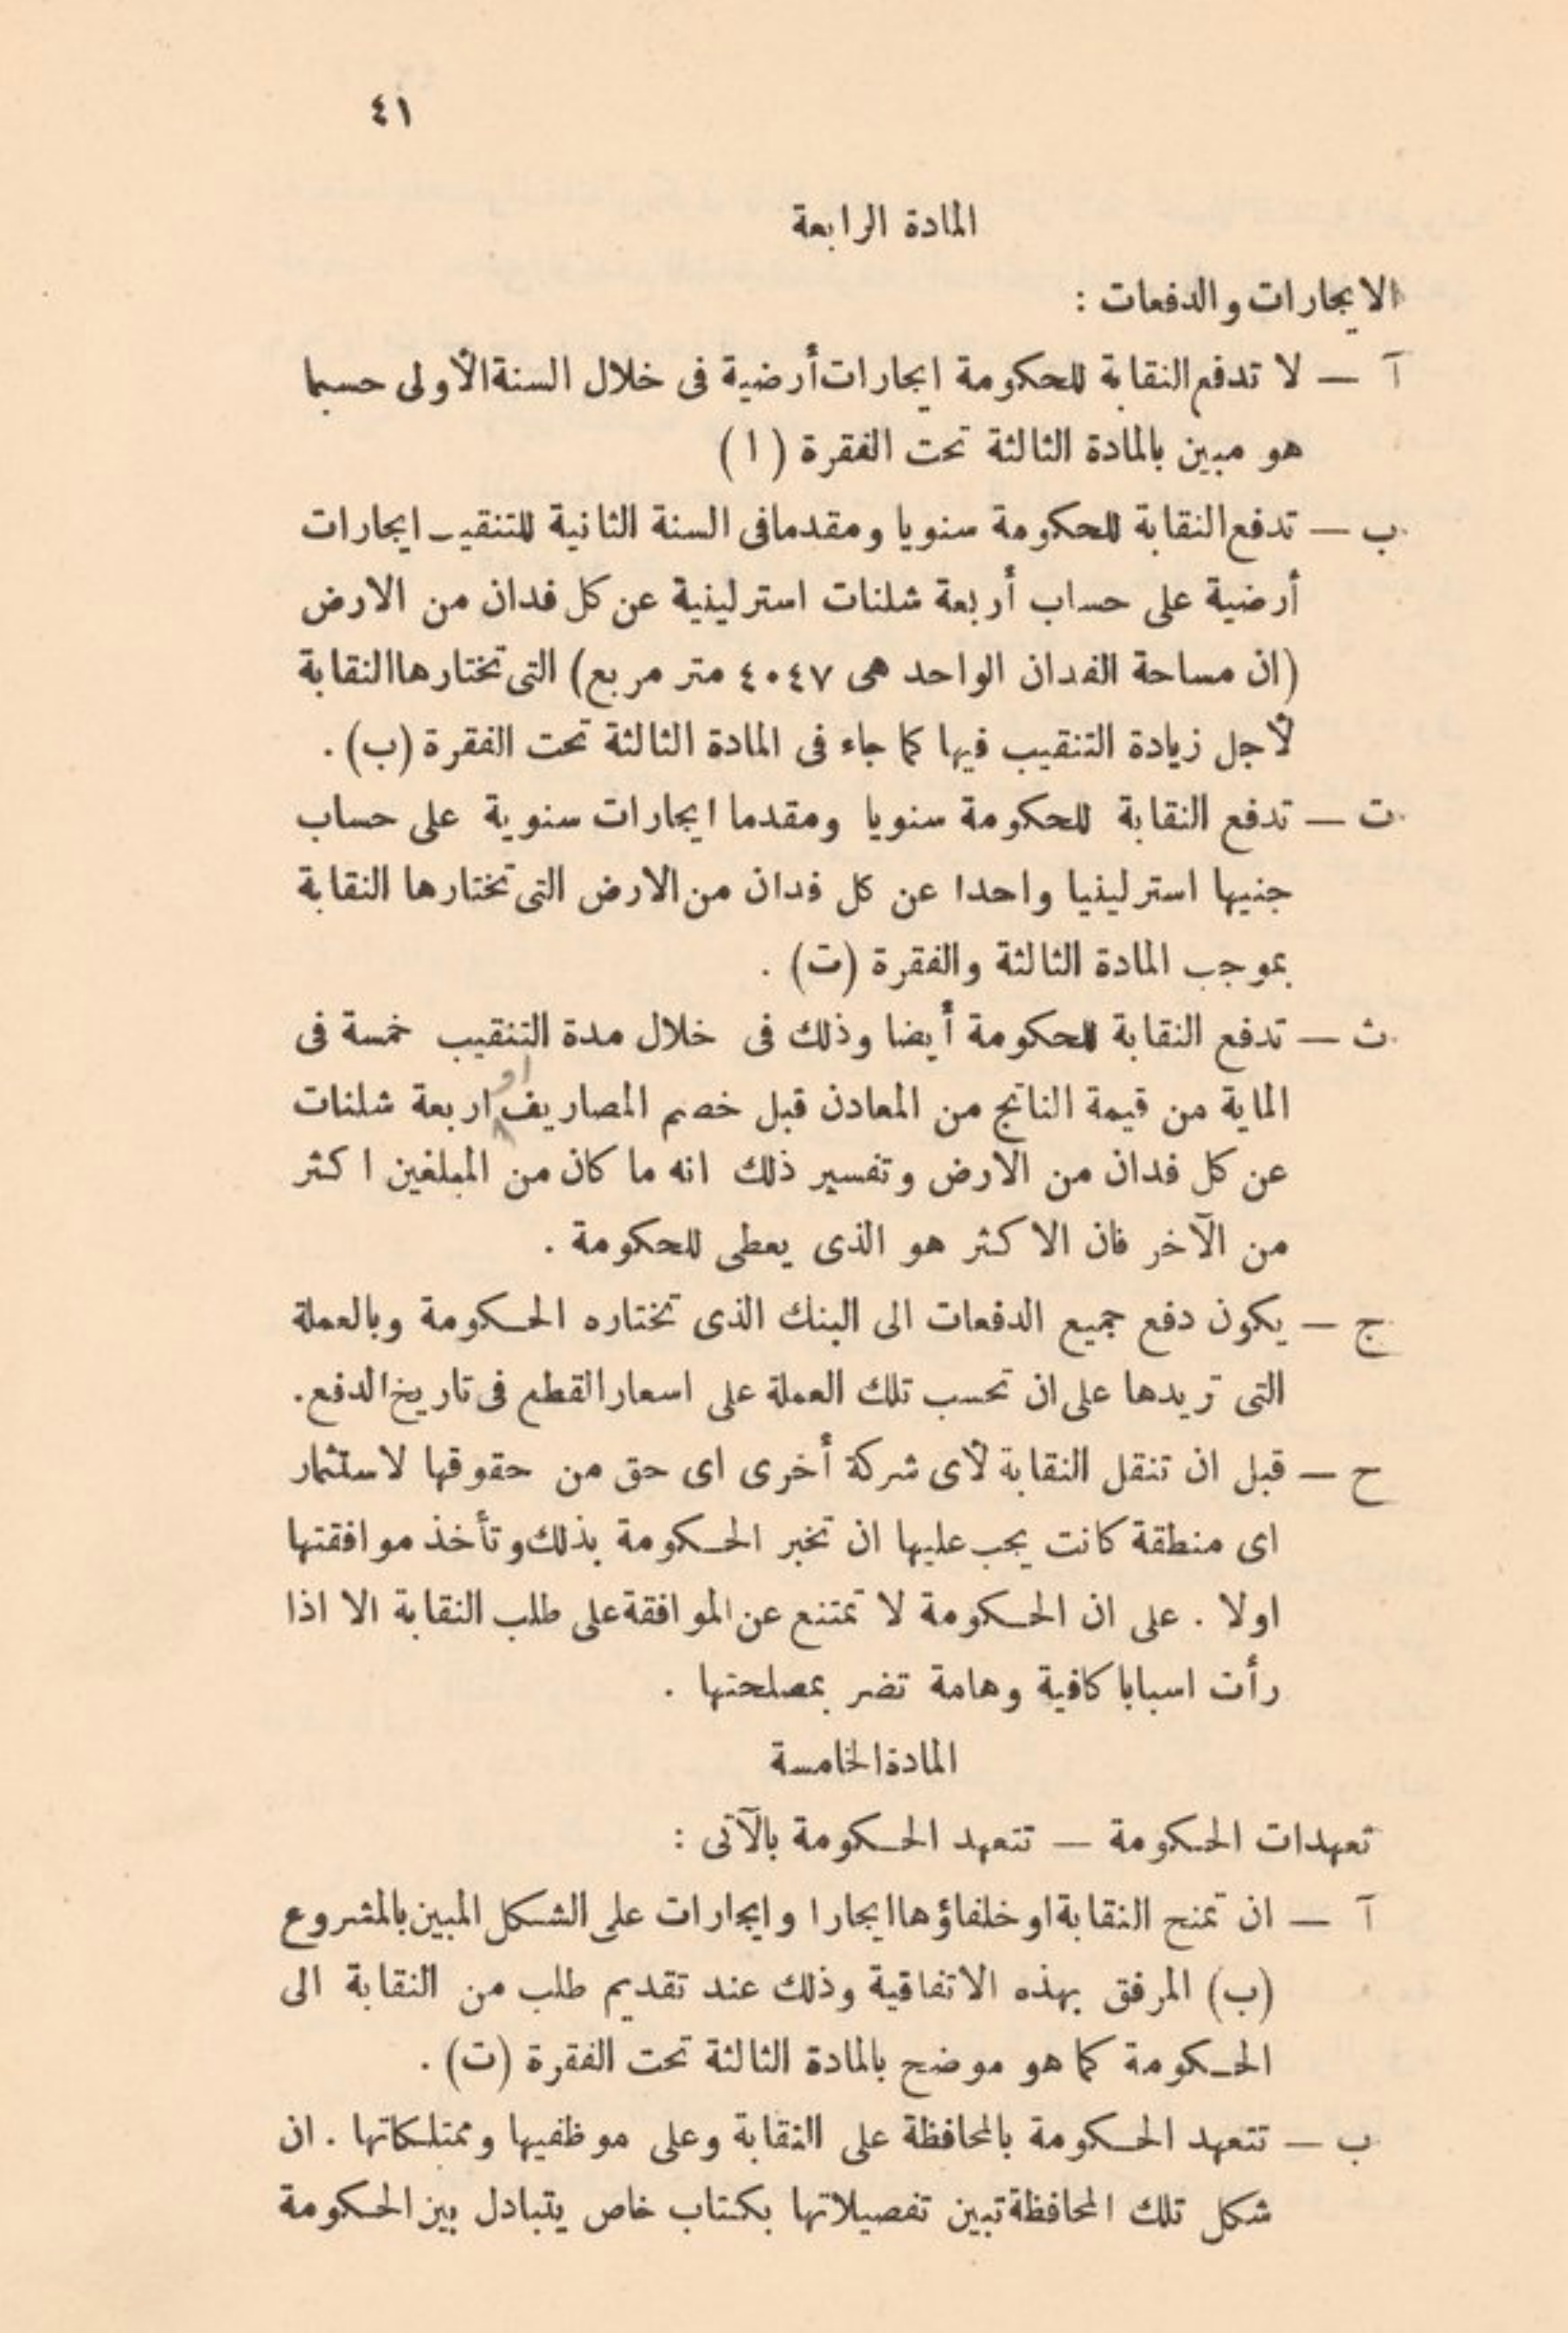 ٤١
المادة الرابعة
الايجارات والدفعات :
آ — لا تدفع النقابة للحكومة ايجارات أرضية فى خلال السنة الأولى حسبما
هو مبين بالمادة الثالثة تحت الفقرة ( ا )
ب — تدفع النقابة للحكومة سنويا ومقدما فى السنة الثانية للتنقيب ايجارات
أرضية على حساب أربعة شلنات استرلينية عن كل فدان من الارض
(ان مساحة الفدان الواحد هى ٤٠٤٧ متر مربع) التى تختارها النقابة
لأجل زيادة التنقيب فيها كما جاء فى المادة الثالثة تحت الفقرة (ب) .
ت — تدفع النقابة للحكومة سنويا ومقدما ايجارات سنوية على حساب
جنيها استرلينيا واحدا عن كل فدان من الارض التى تختارها النقابة
بموجب المادة الثالثة والفقرة (ت) .
ث — تدفع النقابة للحكومة أيضا وذلك فى خلال مدة التنقيب خمسة فى
الماية من قيمة الناتج من المعادن قبل خصم المصاريف او اربعة شلنات
عن كل فدان من الارض وتفسير ذلك انه ما كان من المبلغين اكثر
من الآخر فان الاكثر هو الذى يعطى للحكومة .
ج — يكون دفع جميع الدفعات الى البنك الذى تختاره الحكومة وبالعملة
التى تريدها على ان تحسب تلك العملة على اسعار القطع فى تاريخ الدفع .
ح — قبل ان تنقل النقابة لأى شركة أخرى اى حق من حقوقها لاستثمار
اى منطقة كانت يجب عليها ان تخبر الحكومة بذلك وتأخذ موافقتها
اولا . على ان الحكومة لا تمتنع عن الموافقة على طلب النقابة الا اذا
رأت اسبابا كافية وهامة تضر بمصلحتها .
المادة الخامسة
تعهدات الحكومة — تتعهد الحكومة بالآتى :
آ — ان تمنح النقابة او خلفاؤها ايجارا وايجارات على الشكل المبين بالمشروع
(ب) المرفق بهذه الاتفاقية وذلك عند تقديم طلب من النقابة الى
الحكومة كما هو موضح بالمادة الثالثة تحت الفقرة (ت) .
ب — تتعهد الحكومة بالمحافظة على النقابة وعلى موظفيها وممتلكاتها . ان
شكل تلك المحافظة تبين تفصيلاتها بكتاب خاص يتبادل بين الحكومة